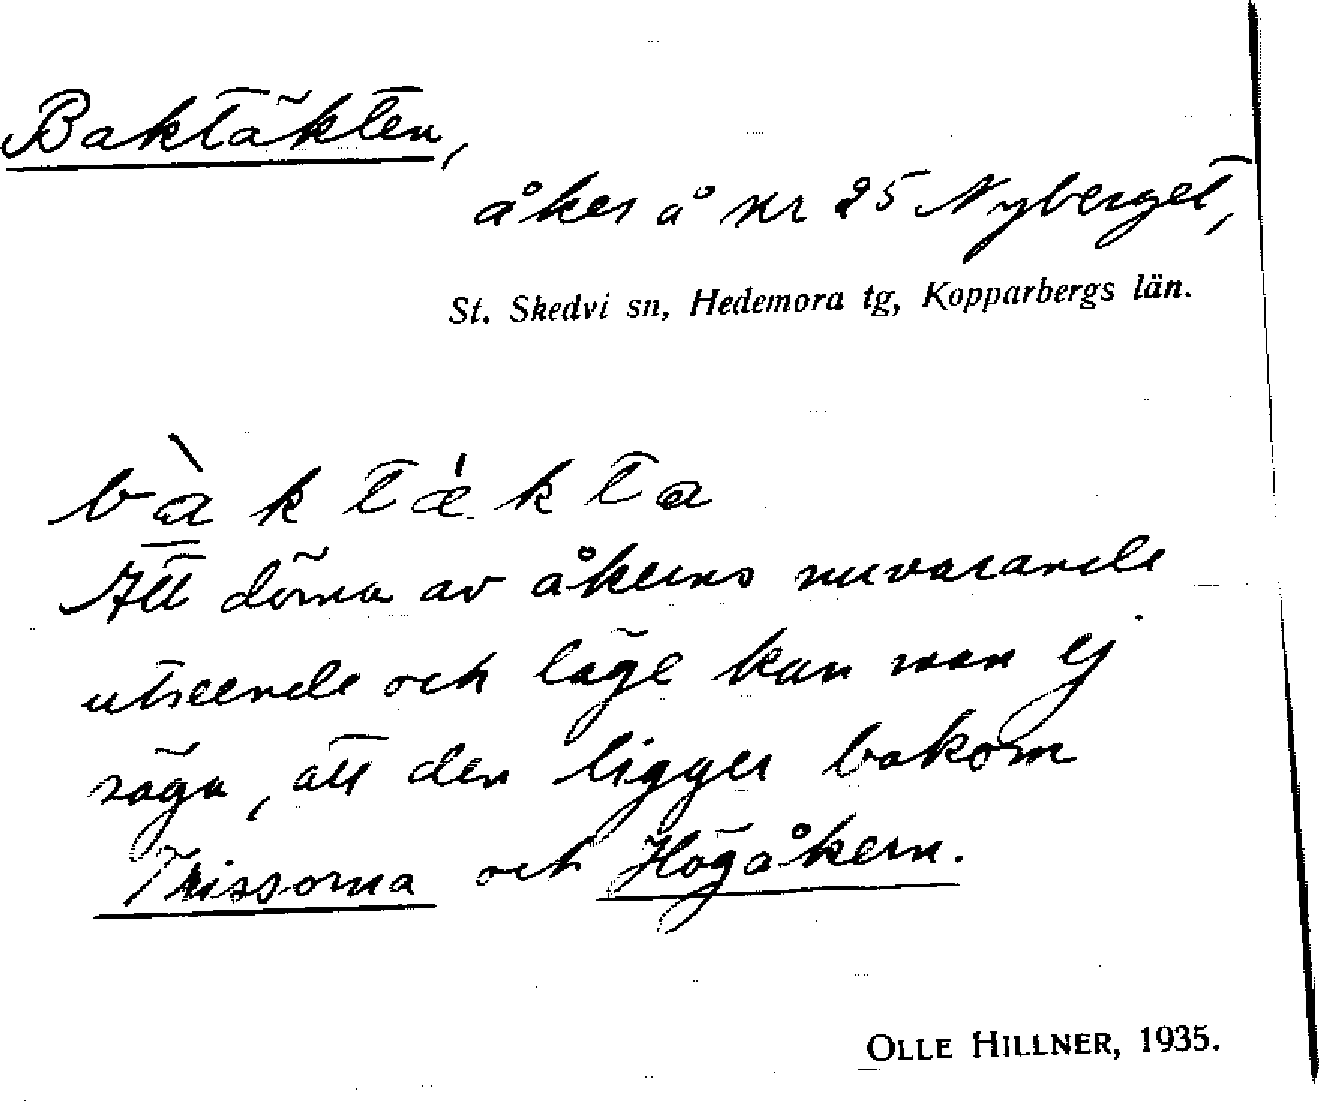 Baktäkten,
åker å nr 25 Nyberget,
St. Skedvi sn, Hedemora tg, Kopparbergs län.
bàktǽkta
Att döma av åkerns nuvarande
utseende och läge kan man ej
säga, att den ligger bakom
Trissorna och Högåkern.
OLLE HILLNER, 1935.